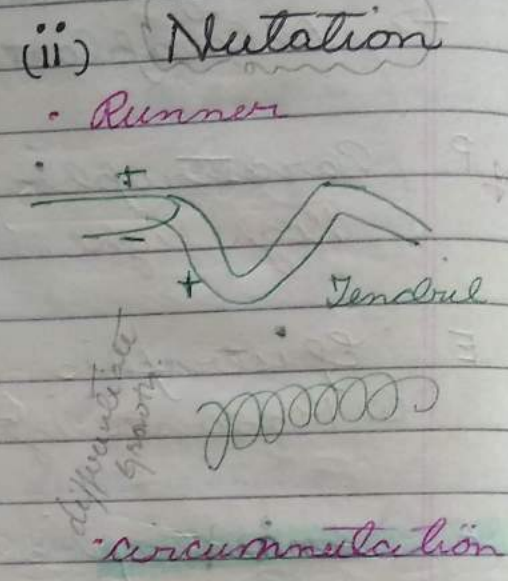 (ii) Nutation
• Runner
+
−
+
Tendril
differentiate
growth.
• circumnutation